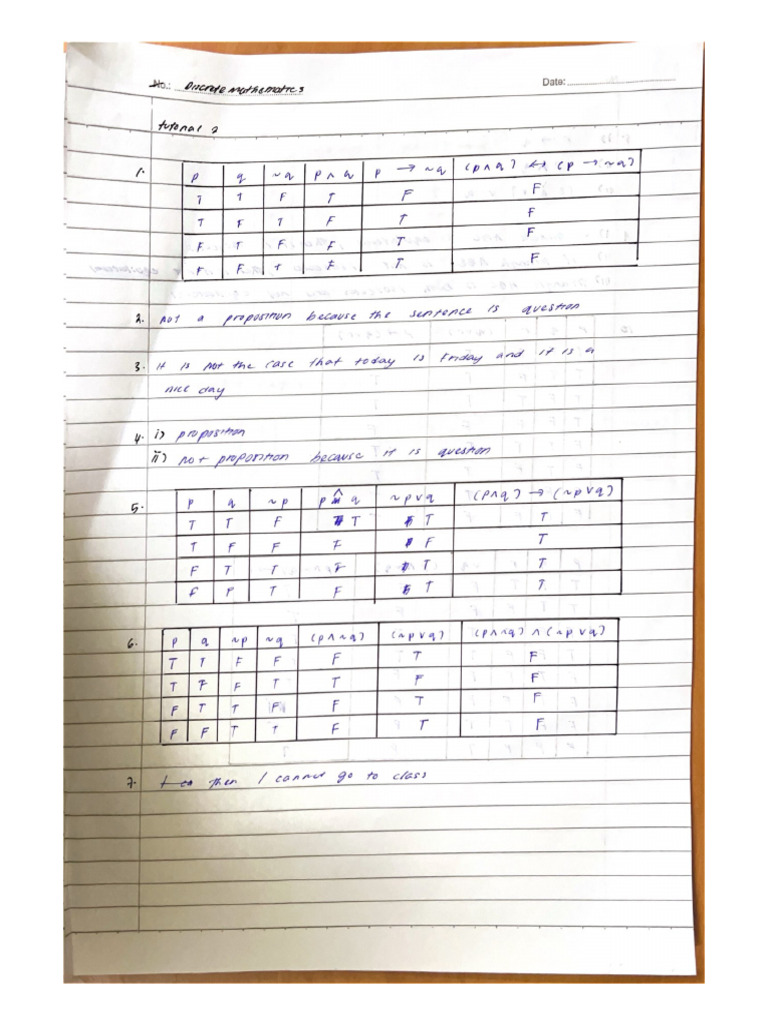 No.: Discrete mathematics Date:
tutorial 2
1. p q ~q p ∧ q p → ~q (p ∧ q) ↔ (p → ~q)
T T F T F F
T F T F T F
F T F F T F
F F T F T F
2. not a proposition because the sentence is question
3. it is not the case that today is Friday and it is a
nice day
4. i) proposition
ii) not proposition because it is question
5. p q ~p p ∧ q ~p ∨ q (p ∧ q) → (~p ∨ q)
T T F T T T
T F F F F T
F T T F T T
F F T F T T
6. p q ~p ~q (p ∧ ~q) (~p ∨ q) (p ∧ ~q) ∧ (~p ∨ q)
T T F F F T F
T F F T T F F
F T T F F T F
F F T T F T F
7. then I cannot go to class